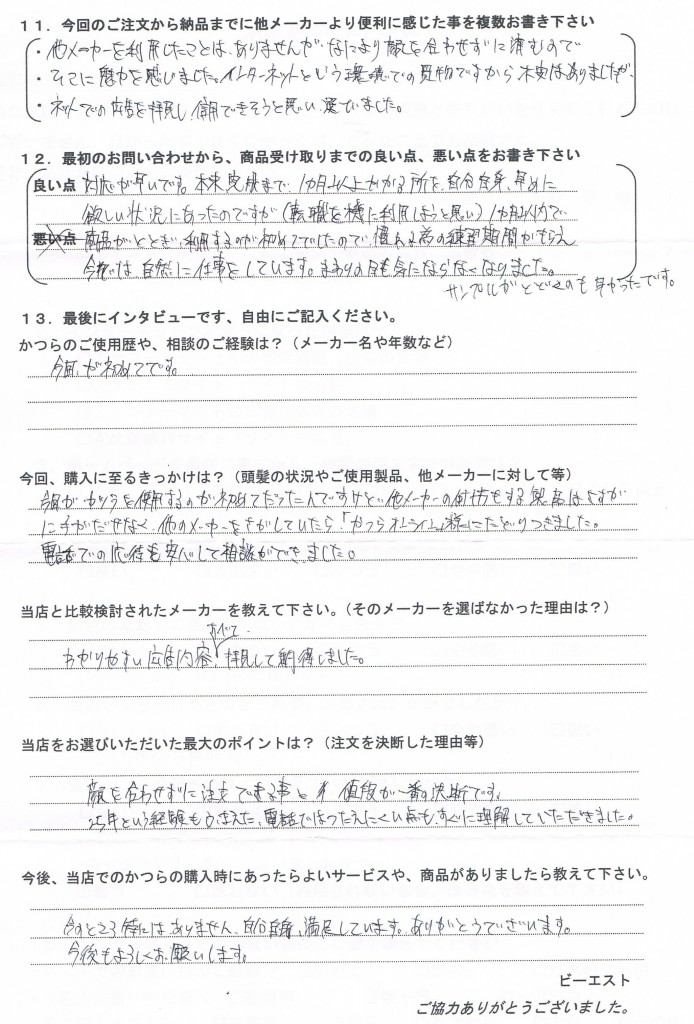 11．今回のご注文から納品までに他メーカーより便利に感じた事を複数お書き下さい
・他メーカーを利用したことは、ありませんが、なにより顔を合わせずに済むので
・そこに魅力を感じました。インターネットという環境での買物ですから不安はありましたが、
・ネットでの広告を拝見し信用できそうと思い、選ていました。
12．最初のお問い合わせから、商品受け取りまでの良い点、悪い点をお書き下さい
良い点 対応が早いです。本来完成まで、1カ月以上かかる所を、自分自身、早めに
欲しい状況にあったのですが（転職を機に利用しようと思い）1カ月以内で
悪い点 商品がとどき、利用するのが初めてでしたので、慣れる為の練習期間がもらえ
今では、自然に仕事をしています。まわりの目も気にならなくなりました。
サンプルがとどくのも早かったです。
13．最後にインタビューです、自由にご記入ください。
かつらのご使用歴や、相談のご経験は？（メーカー名や年数など）
今回、が初めてです。
今回、購入に至るきっかけは？（頭髪の状況やご使用製品、他メーカーに対して等）
今回がカツラを使用するのが初めてだったんですけど、他メーカーの何倍もする製品はさすが
に手がだせなく、他のメーカーをさがしていたら、「かつらオンライン」様にたどりつきました。
電話での応待も安心して相談ができました。
当店と比較検討されたメーカーを教えて下さい。（そのメーカーを選ばなかった理由は？）
わかりやすい広告内容、すべて拝見して納得しました。
当店をお選びいただいた最大のポイントは？（注文を決断した理由等）
顔を合わせずに注文できる事と 値段が一番の決断です。
25年という経験もうかがえた、電話ではつたえにくい点も、すぐに理解していただきました。
今後、当店でのかつらの購入時にあったらよいサービスや、商品がありましたら教えて下さい。
今のところ特にはありません、自分自身、満足しています。ありがとうございます。
今後もよろしくお願いします。
ビーエスト
ご協力ありがとうございました。